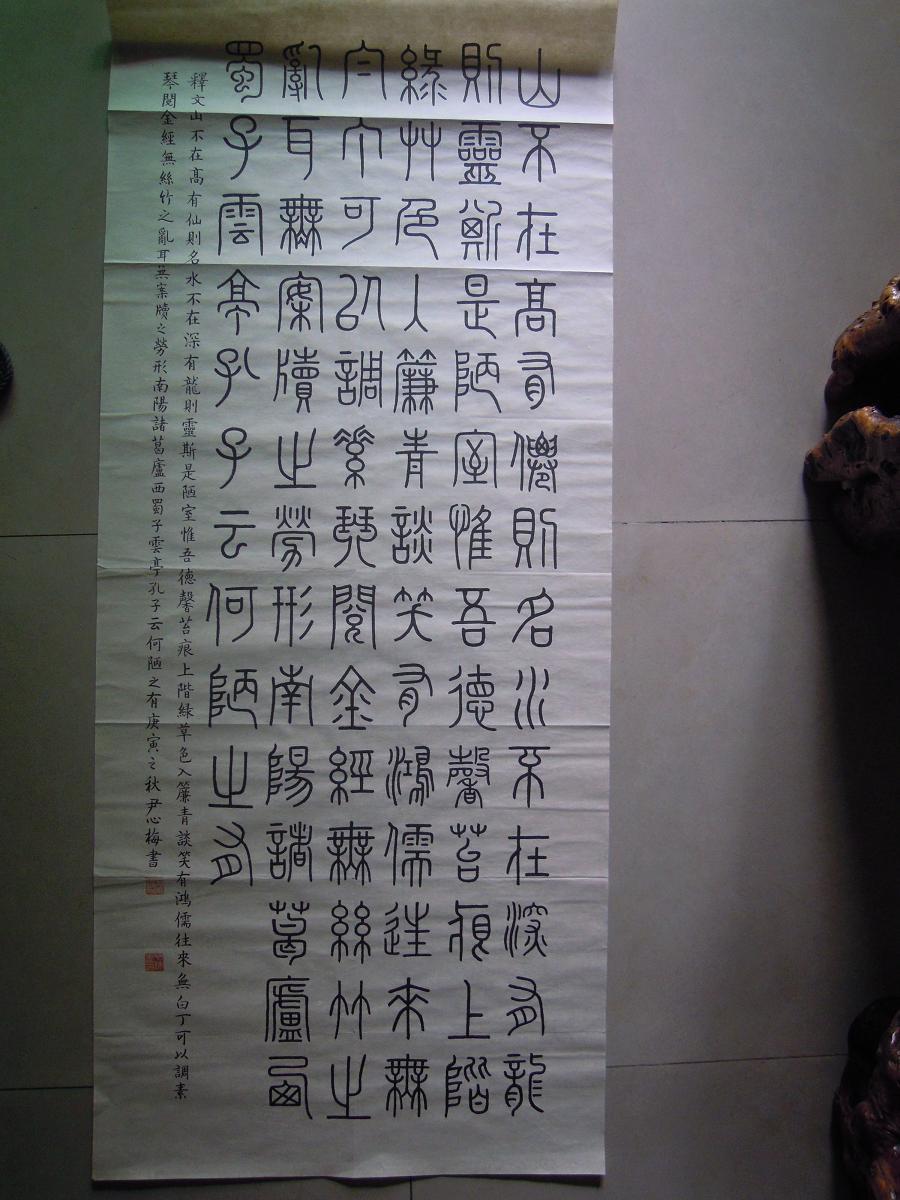 山不在高有僊則名水不在深有龍
則靈斯是陋室惟吾德馨苔痕上階
綠艸色入簾青談笑有鴻儒往來無
白丁可以調素琴閱金經無絲竹之
亂耳無案牘之勞形南陽諸葛廬西
蜀子雲亭孔子云何陋之有
釋文山不在髙有仙則名水不在深有龍則靈斯是陋室惟吾德馨苔痕上階綠草色入簾青談笑有鴻儒往來無白丁可以調素
琴閱金經無絲竹之亂耳無案牘之勞形南陽諸葛廬西蜀子雲亭孔子云何陋之有庚寅之秋尹心梅書